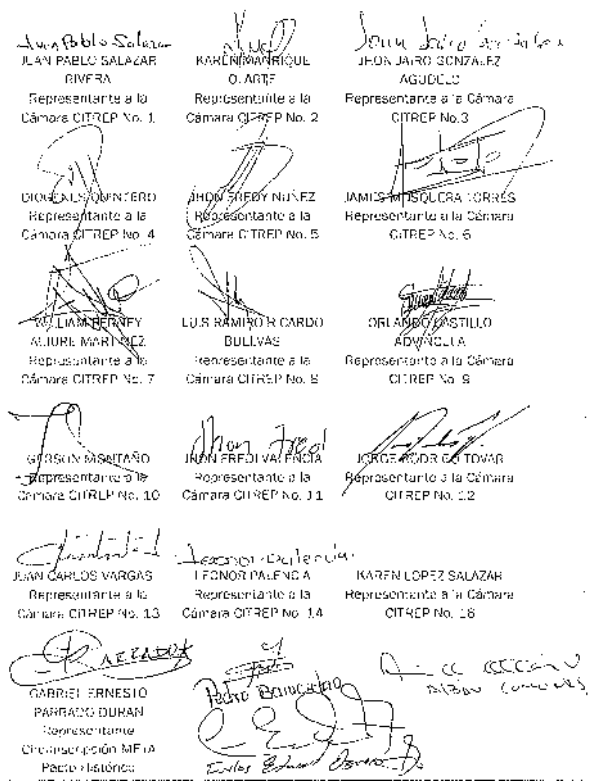 Juan Pablo Salazar
JUAN PABLO SALAZAR
RIVERA
Representante a la
Cámara CITREP No. 1
KAREN MANRIQUE
OLARTE
Representante a la
Cámara CITREP No. 2
JHON JAIRO GONZALEZ
AGUDELO
Representante a la Cámara
CITREP No. 3
DIOGENES QUINTERO
Representante a la
Cámara CITREP No. 4
JHON FREDY NUÑEZ
Representante a la
Cámara CITREP No. 5
JAMES MOSQUERA TORRES
Representante a la Cámara
CITREP No. 6
WILLIAM FERNEY
ALIURE MARTINEZ
Representante a la
Cámara CITREP No. 7
LUIS RAMIRO RICARDO
BUELVAS
Representante a la
Cámara CITREP No. 8
ORLANDO CASTILLO
ADVINCULA
Representante a la Cámara
CITREP No. 9
GERSON MONTAÑO
Representante a la
Cámara CITREP No. 10
Jhon Fredi
JHON FREDI VALENCIA
Representante a la
Cámara CITREP No. 11
JORGE RODRIGO TOVAR
Representante a la Cámara
CITREP No. 12
JUAN CARLOS VARGAS
Representante a la
Cámara CITREP No. 13
Leonor Palencia
LEONOR PALENCIA
Representante a la
Cámara CITREP No. 14
KAREN LOPEZ SALAZAR
Representante a la Cámara
CITREP No. 16
GABRIEL ERNESTO
PARRADO DURAN
Representante
Circunscripción META
Pacto Histórico
Pedro